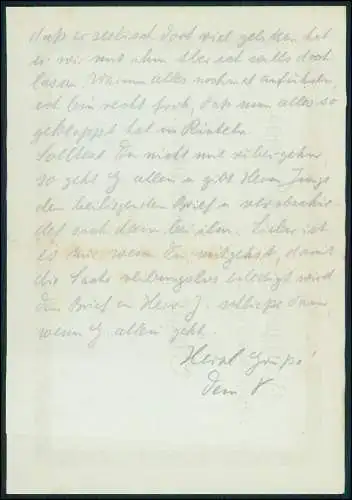 daß er seelisch dort viel gelitten hat
er wir mit ihm über ich solls dort
lassen. Warum alles nochmal anführen,
ich bin recht froh, daß nun alles so
geklappt hat in Rinteln.
Solltest Du nicht mit rüber gehn
so geht G allein u gibt Herrn Junge
den beiliegenden Brief u verabschie
det sich dann bei ihm. Lieber ist
es mir wenn Du mitgehst, damit
die Sache reibungslos erledigt wird
Den Brief an Herr J. schließe dann
wenn G allein geht.
Herzl Grüße!
Dein V